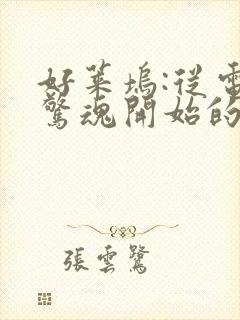 好萊塢:從電
驚魂開始的
張雲鷺